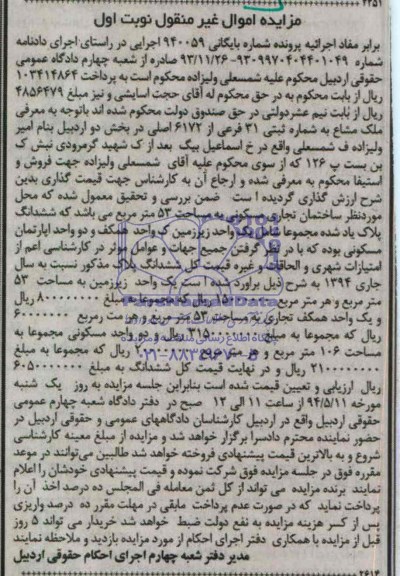 ۲۲۵۱
مزایده اموال غیر منقول نوبت اول
برابر مفاد اجرائیه پرونده شماره بایگانی ۹۴۰۰۵۹ اجرایی در راستای اجرای دادنامه
شماره ۹۳۰۹۹۷۰۴۰۴۴۰۱۰۴۹-۹۳/۱۱/۲۶ صادره از شعبه چهارم دادگاه عمومی
حقوقی اردبیل محکوم علیه شمسعلی ولیزاده محکوم است به پرداخت ۱۰۳۴۱۴۸۶۴
ریال از بابت محکوم به در حق محکوم له آقای حجت اسایشی و نیز مبلغ ۴۸۵۶۴۷۹
ریال از بابت نیم عشردولتی در حق صندوق دولت محکوم شده اند باتوجه به معرفی
ملک مشاع به شماره ثبتی ۳۱ فرعی از ۶۱۷۲ اصلی در بخش دو اردبیل بنام امیر
ولیزاده ف شمسعلی واقع در خ اسماعیل بیگ بعد از ک شهید گرمرودی نبش ک
بن بست پ ۱۲۶ که از سوی محکوم علیه آقای شمسعلی ولیزاده جهت فروش و
استیفا محکوم به معرفی شده و ارجاع آن به کارشناس جهت قیمت گذاری بدین
شرح ارزش گذاری گردیده است ضمن بررسی و تحقیق معمول شده که محل
موردنظر ساختمان تجاری مسکونی به مساحت ۵۳ متر مربع می باشد که ششدانگ
پلاک یاد شده مجموعا شامل یک واحد زیرزمین یک واحد همکف و دو واحد اپارتمان
مسکونی بوده که با در نظر گرفتن جمیع جهات و عوامل موثر در کارشناسی اعم از
امتیازات شهری و الحاقات و غیره قیمت کل ششدانگ پلاک مذکور نسبت به سال
جاری ۱۳۹۴ به شرح ذیل براورد شده است یک واحد زیرزمین به مساحت ۵۳
متر مربع و هر متر مربع ریال که مجموعا به مبلغ ریال
و یک واحد همکف تجاری به مساحت ۵۳ متر مربع و هر مت رمربع
ریال که مجموعا به مبلغ ریال و دو واحد مسکونی مجموعا به
مساحت ۱۰۶ متر مربع و هر متر مربع ریال که مجموعا به مبلغ
۲۱۰۰۰۰۰۰۰۰ ریال و در نهایت قیمت کل ششدانگ به مبلغ ۶۰۵۰۰۰۰۰۰۰
ریال ارزیابی و تعیین قیمت شده است بنابراین جلسه مزایده به روز یک شنبه
مورخه ۹۴/۵/۱۱ از ساعت ۱۱ الی ۱۲ صبح در دفتر دادگاه شعبه چهارم عمومی
حقوقی اردبیل واقع در اردبیل کارشناسان دادگاههای عمومی و حقوقی اردبیل در
حضور نماینده محترم دادسرا برگزار خواهد شد و مزایده از مبلغ معینه کارشناسی
شروع و به بالاترین قیمت پیشنهادی فروخته خواهد شد طالبین می‌توانند در موعد
مقرره فوق در جلسه مزایده فوق شرکت نموده و قیمت پیشنهادی خودشان را اعلام
نمایند برنده مزایده می تواند از کل ثمن معامله فی المجلس ده درصد اخذ آن را
پرداخت نماید که در صورت عدم پرداخت مابقی در مهلت مقرر ده درصد واریزی
پس از کسر هزینه مزایده به نفع دولت ضبط خواهد شد خریدار می تواند ۵ روز
قبل از مزایده با همکاری دفتر اجرای احکام از مورد مزایده بازدید و ملاحظه نمایند
مدیر دفتر شعبه چهارم اجرای احکام حقوقی اردبیل